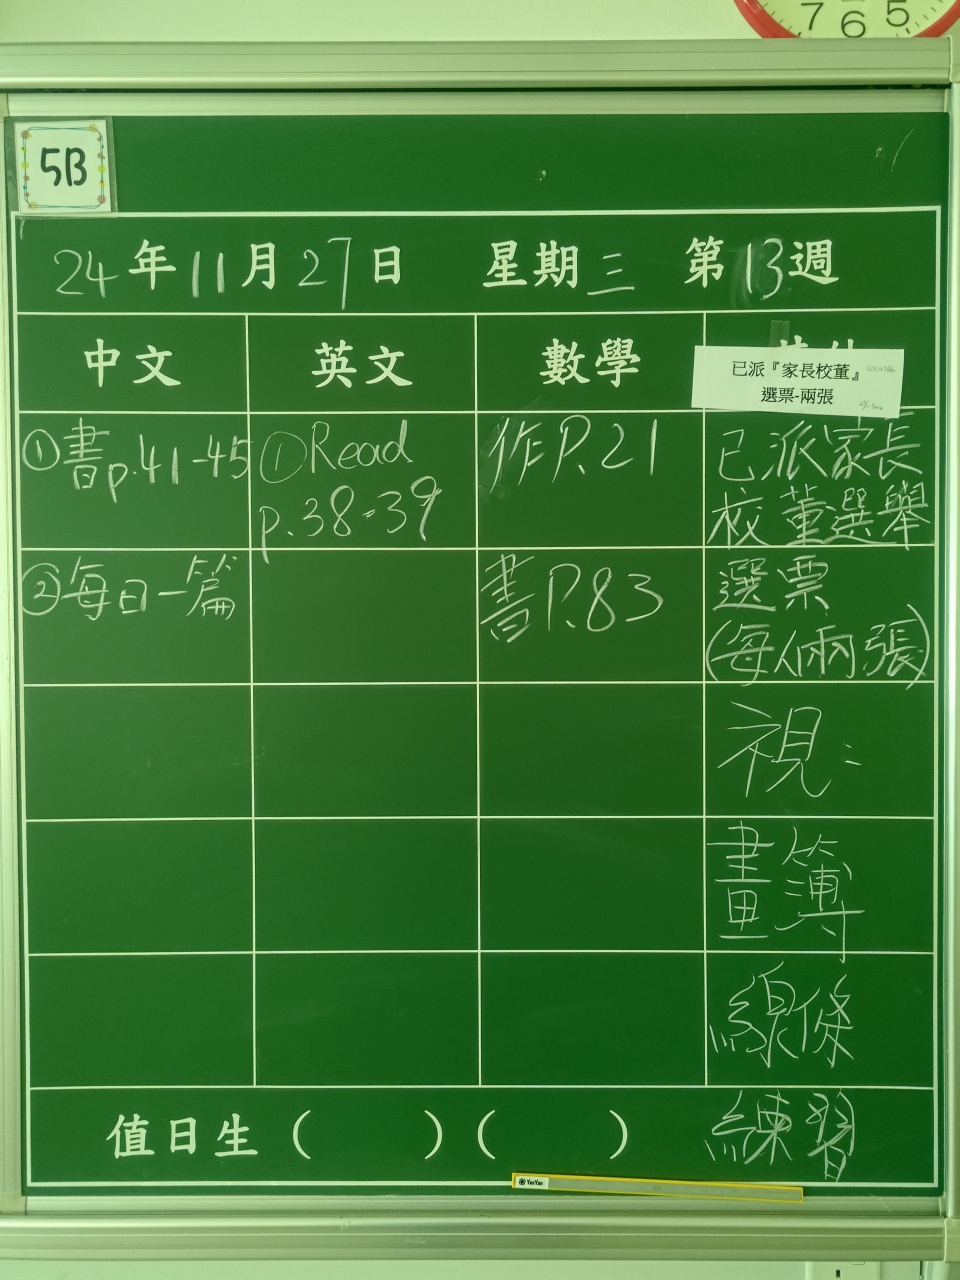 7 6 5
5B
24年11月27日 星期三 第13週
中文 英文 數學
已派『家長校董』
選票-兩張
①書p.41-45
②每日一篇
①Read
p.38-39
作P.21
書P.83
已派家長
校董選舉
選票
(每人兩張)
視:
畫簿
線條
練習
值日生( )( )
YanYan